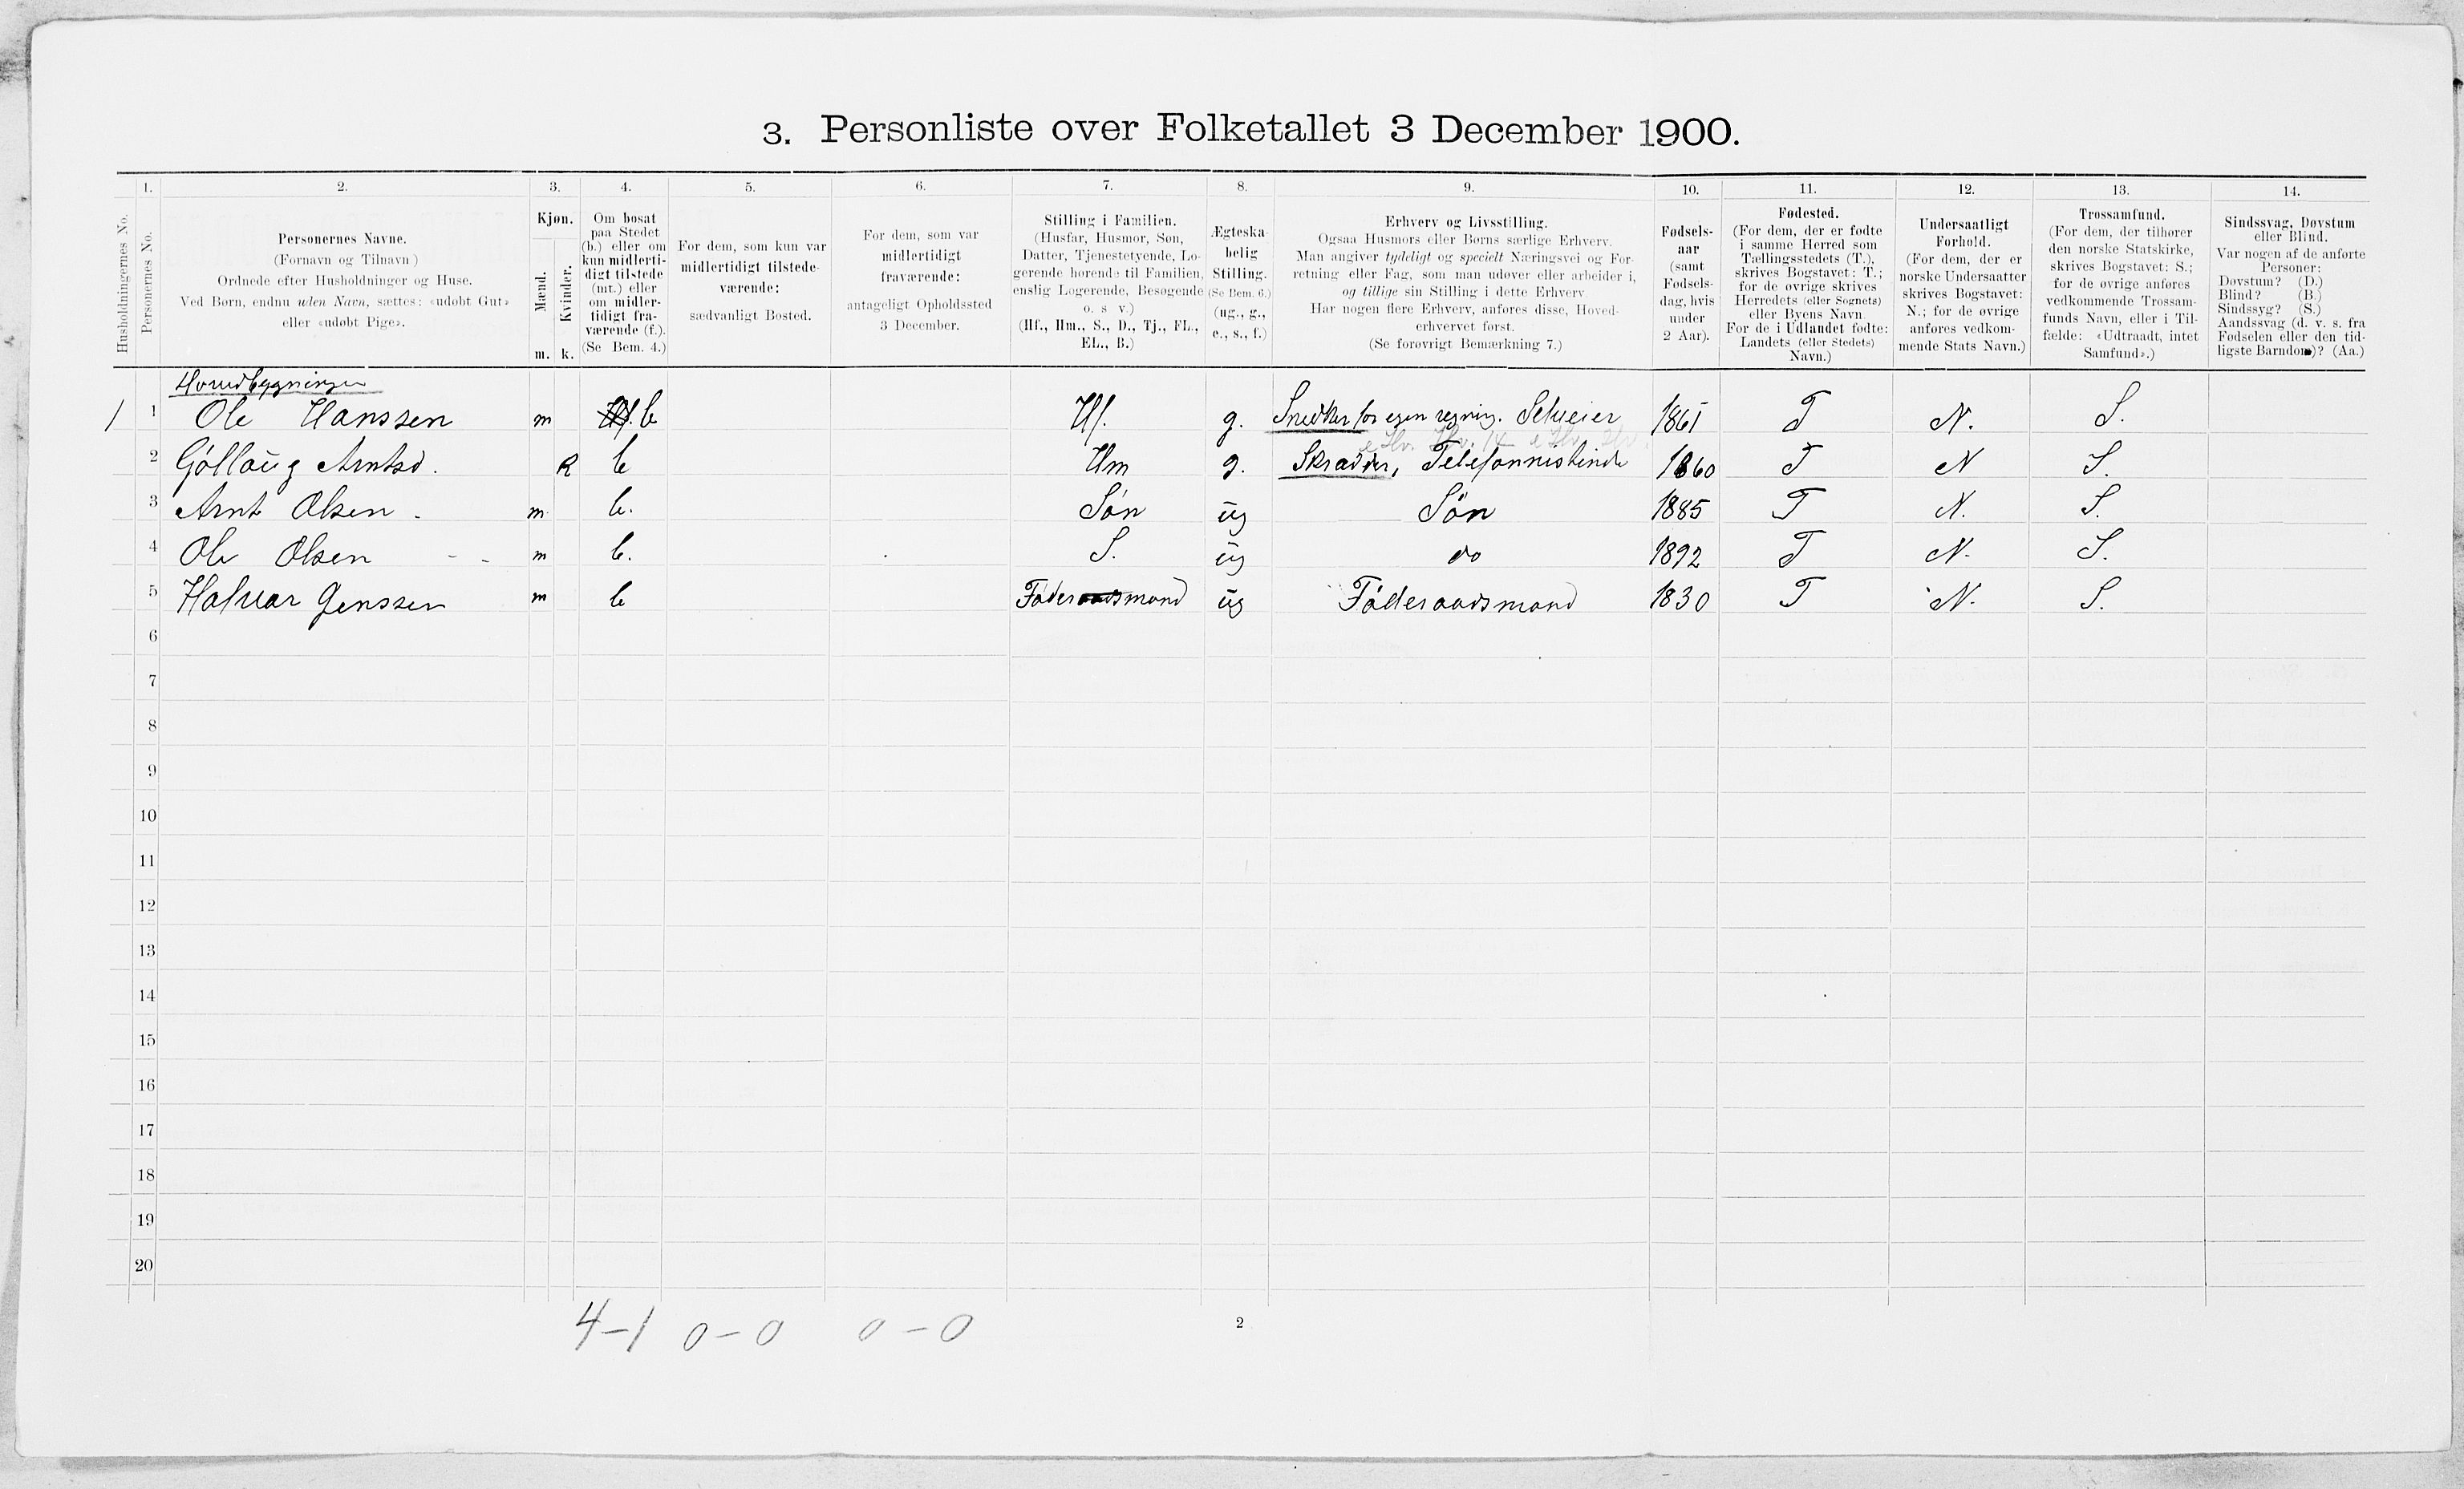 3. Personliste over Folketallet 3 December 1900.
Husholdningernes No.
1.
Personernes No.
2.
Personernes Navne.
(Fornavn og Tilnavn)
Ordnede efter Husholdninger og Huse.
Ved Børn, endnu uden Navn, sættes: «udøbt Gut»
eller «udøbt Pige».
3.
Kjøn.
Mænd.
Kvinder.
m. k.
4.
Om bosat
paa Stedet
(b.) eller om
kun midlerti-
digt tilstede
(mt.) eller
om midler-
tidigt fra-
værende (f.).
(Se Bem. 4.)
5.
For dem, som kun var
midlertidigt tilstede-
værende:
sædvanligt Bosted.
6.
For dem, som var
midlertidigt
fraværende:
antageligt Opholdssted
3 December.
7.
Stilling i Familien.
(Husfar, Husmor, Søn,
Datter, Tjenestetyende, Lo-
gerende hørende til Familien,
enslig Logerende, Besøgende
o. s v.)
(Hf., Hm., S., D., Tj., FL.,
EL., B.)
8.
Ægteska-
belig
Stilling.
(Se Bem. 6.)
(ug., g.,
e., s., f.)
9.
Erhverv og Livsstilling.
Ogsaa Husmors eller Børns særlige Erhverv.
Man angiver tydeligt og specielt Næringsvei og For-
retning eller Fag, som man udøver eller arbeider i,
og tillige sin Stilling i dette Erhverv.
Har nogen flere Erhverv, anføres disse, Hoved-
erhvervet først.
(Se forøvrigt Bemærkning 7.)
10.
Fødsels-
aar
(samt
Fødsels-
dag, hvis
under
2 Aar).
11.
Fødested.
(For dem, der er fødte
i samme Herred som
Tællingsstedets (T.),
skrives Bogstavet: T.;
for de øvrige skrives
Herredets (eller Sognets)
eller Byens Navn.
For de i Udlandet fødte:
Landets (eller Stedets)
Navn.)
12.
Undersaatligt
Forhold.
(For dem, der er
norske Undersaatter
skrives Bogstavet:
N.; for de øvrige
anføres vedkom-
mende Stats Navn.)
13.
Trossamfund.
(For dem, der tilhører
den norske Statskirke,
skrives Bogstavet: S.;
for de øvrige anføres
vedkommende Trossam-
funds Navn, eller i Til-
fælde: «Udtraadt, intet
Samfund».)
14.
Sindssvag, Døvstum
eller Blind.
Var nogen af de anførte
Personer:
Døvstum? (D.)
Blind? (B.)
Sindssyg? (S.)
Aandssvag (d. v. s. fra
Fødselen eller den tid-
ligste Barndom)? (Aa.)
Hovedbygningen
1 1 Ole Hanssen m b Hf. g. Snedker for egen regning. Selveier 1861 T N. S.
2 Gøllaug Arntsd. k b Hm g. Skrædder, Telefonnistinde 1860 T N S.
3 Arnt Olsen. m b. Søn ug Søn 1885 T N. S.
4 Ole Olsen m b. S. ug do 1892 T N. S.
5 Halvar Jenssen m b Føderaadsmand ug Føderaadsmand 1830 T N. S.
6
7
8
9
10
11
12
13
14
15
16
17
18
19
20
4-1 0-0 0-0
2